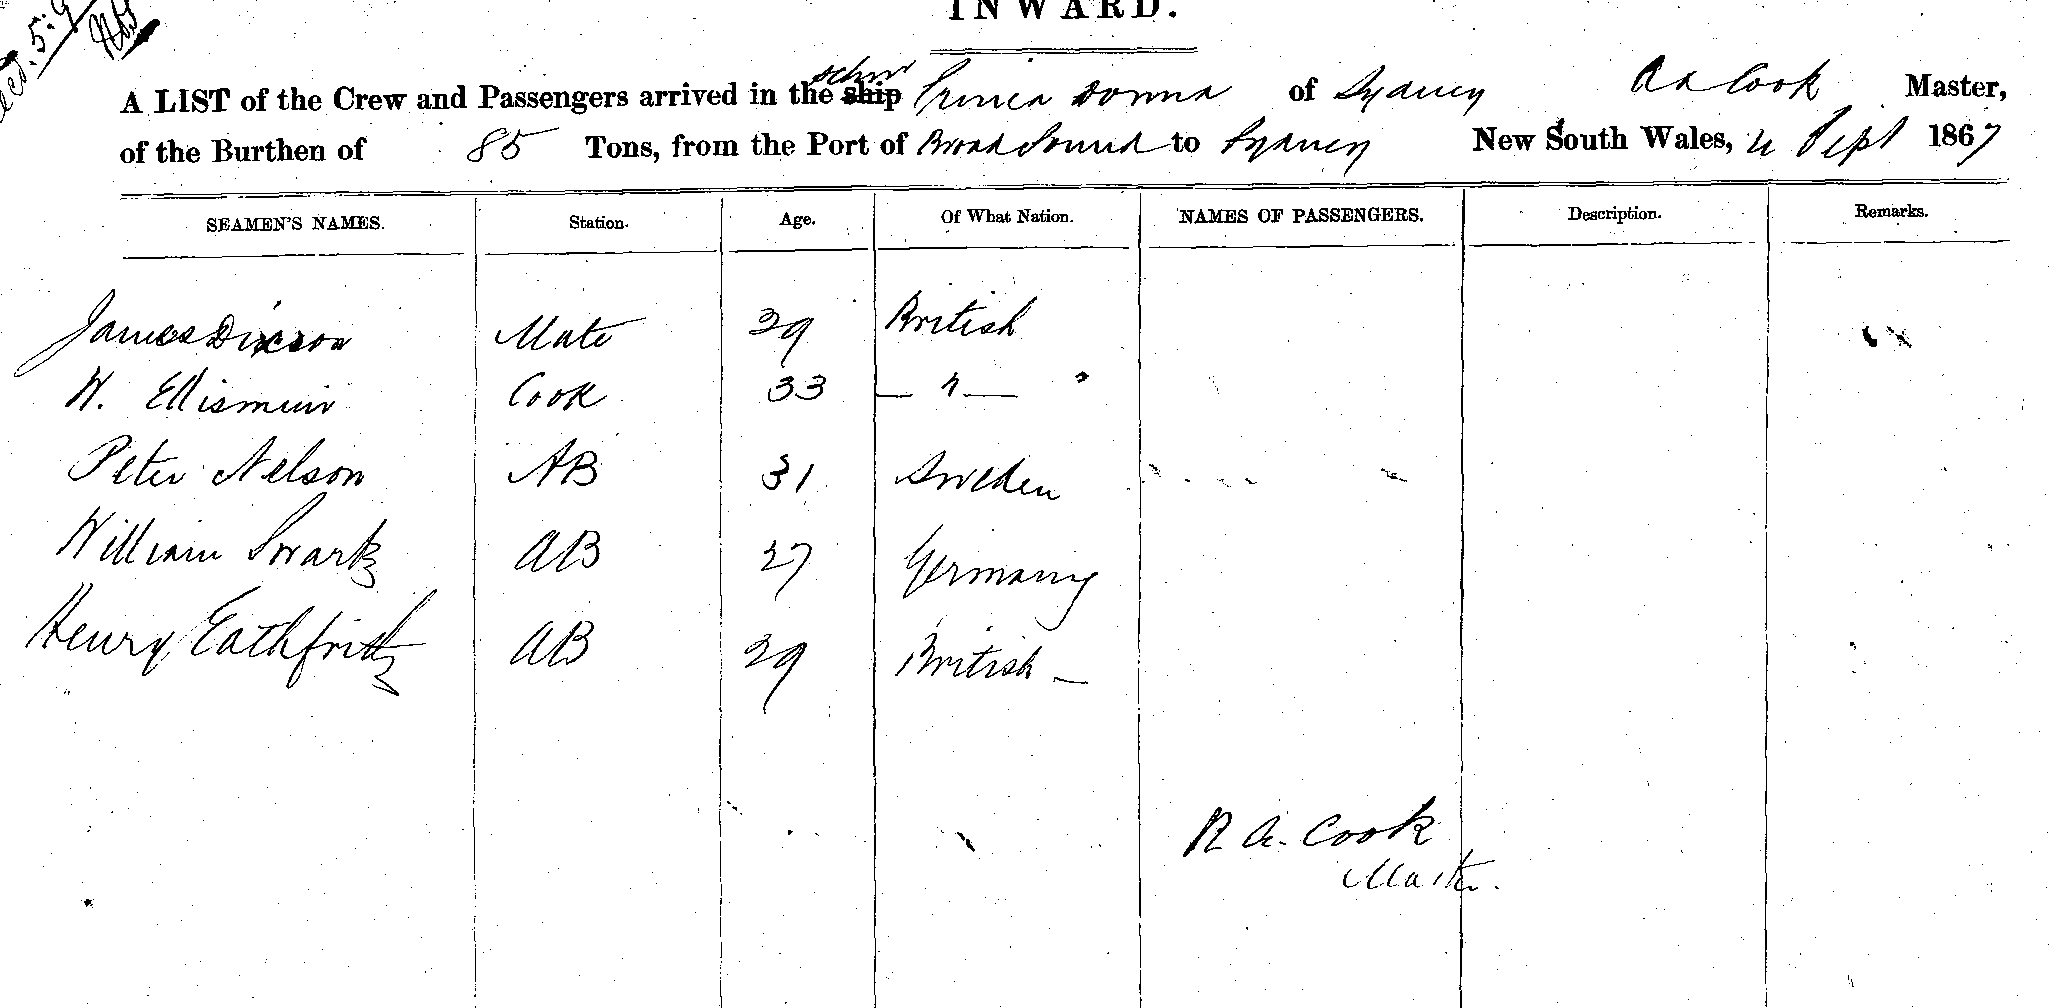 INWARD.
A LIST of the Crew and Passengers arrived in the schnr ship Prima Donna of Sydney R A Cook Master,
of the Burthen of 85 Tons, from the Port of Broad Sound to Sydney New South Wales, 4 Sept 1867
SEAMEN'S NAMES. Station. Age. Of What Nation. NAMES OF PASSENGERS. Description. Remarks.
James Dixson Mate 29 British
W. Ellismuir Cook 33 — " —
Peter Nelson AB 31 Sweden
William Swartz AB 27 Germany
Henry Eathfritz AB 29 British —
R A. Cook
Master.